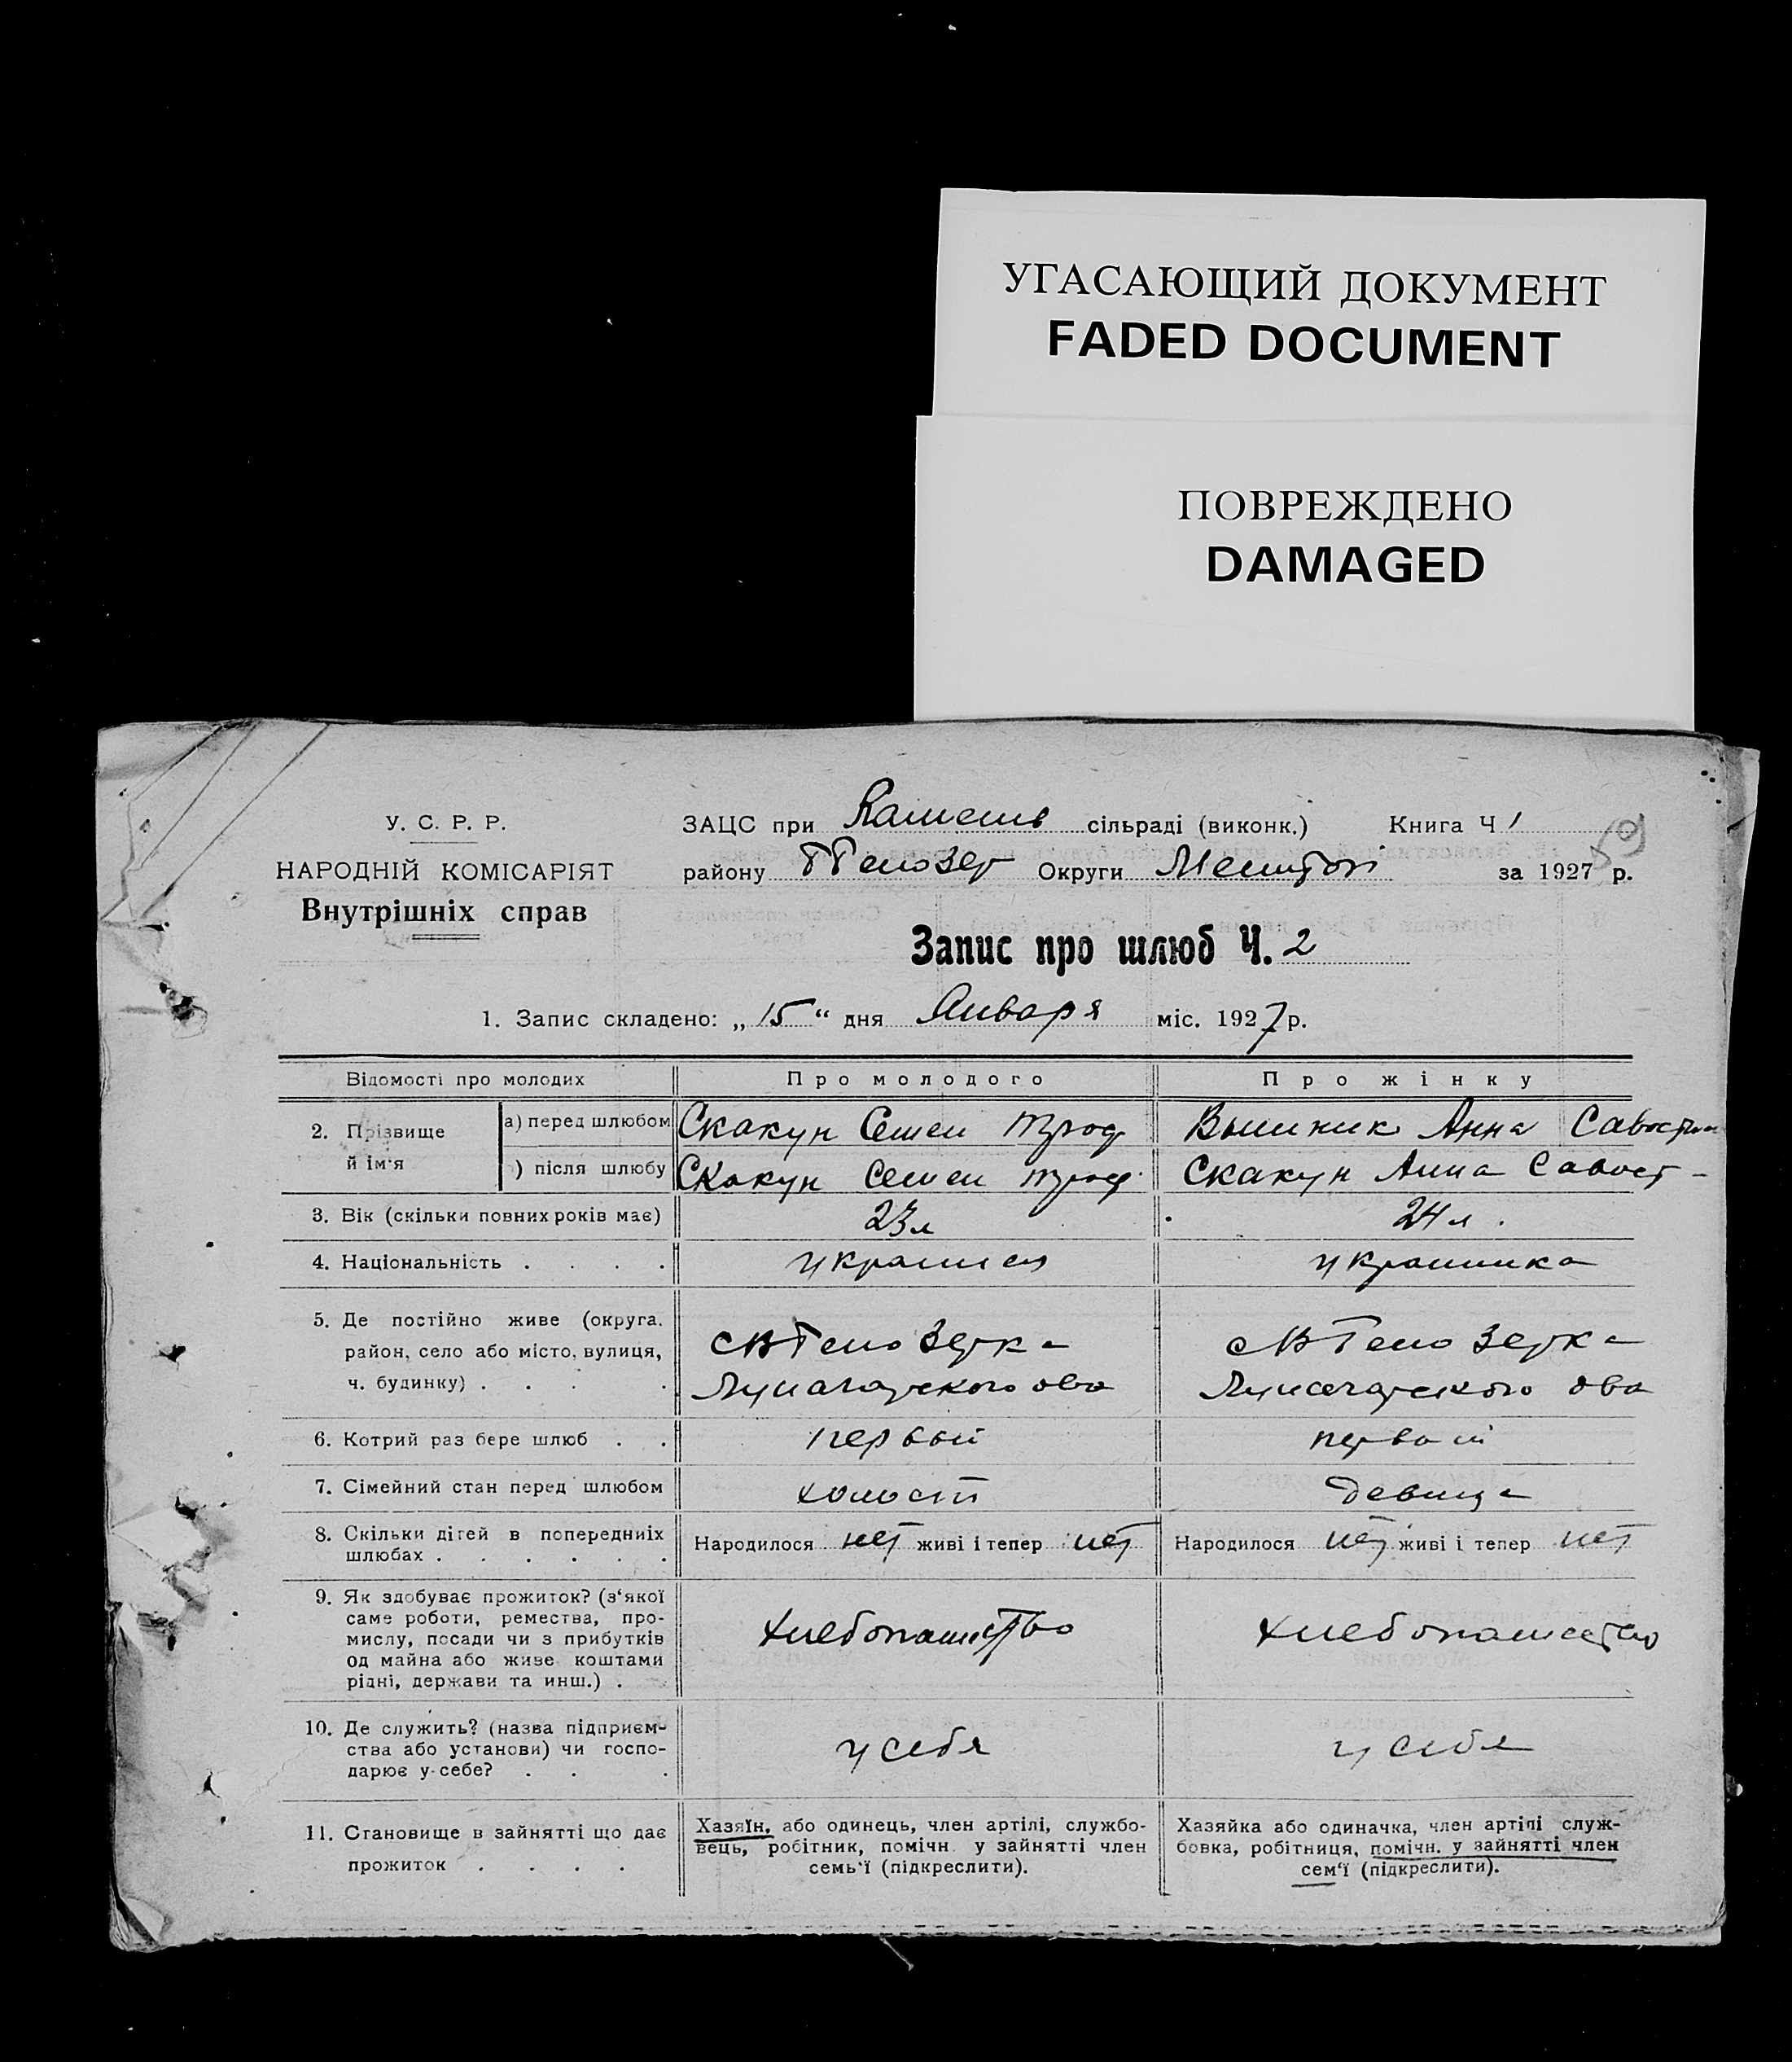 УГАСАЮЩИЙ ДОКУМЕНТ
FADED DOCUMENT
ПОВРЕЖДЕНО
DAMAGED
У. С. Р. Р.
НАРОДНІЙ КОМІСАРІЯТ
Внутрішніх справ
ЗАЦС при сільраді (виконк.) Книга Ч 1
59
району Округи за 1927 р.
Запис про шлюб Ч. 2
1. Запис складено: „ 15 “ дня Января міс. 1927 р.
Відомості про молодих Про молодого Про жінку
2. Прізвище й ім'я
а) перед шлюбом Скакун Семен Троф Анна Савостьян
) після шлюбу Скакун Семен Троф. Скакун Анна Савост-
3. Вік (скільки повних років має) 23 л 24 л.
4. Національність . . . . украинец украинка
5. Де постійно живе (округа,
район, село або місто, вулиця,
ч. будинку) . . . .
6. Котрий раз бере шлюб . . первый первый
7. Сімейний стан перед шлюбом холост девица
8. Скільки дітей в попередніїх
шлюбах . . . . . .
Народилося нет живі і тепер нет Народилося нет живі і тепер нет
9. Як здобуває прожиток? (з'якої
саме роботи, ремества, про-
мислу, посади чи з прибутків
од майна або живе коштами
рідні, держави та инш.) .
хлебопашество хлебопашество
10. Де служить? (назва підприєм-
ства або установи) чи госпо-
дарює у-себе? . . .
у себя у себя
11. Становище в зайнятті що дає
прожиток . . . .
Хазяїн, або одинець, член артілі, службо-
вець, робітник, помічн у зайнятті член
семь'ї (підкреслити).
Хазяйка або одиначка, член артілі служ-
бовка, робітниця, помічн. у зайнятті член
сем'ї (підкреслити).